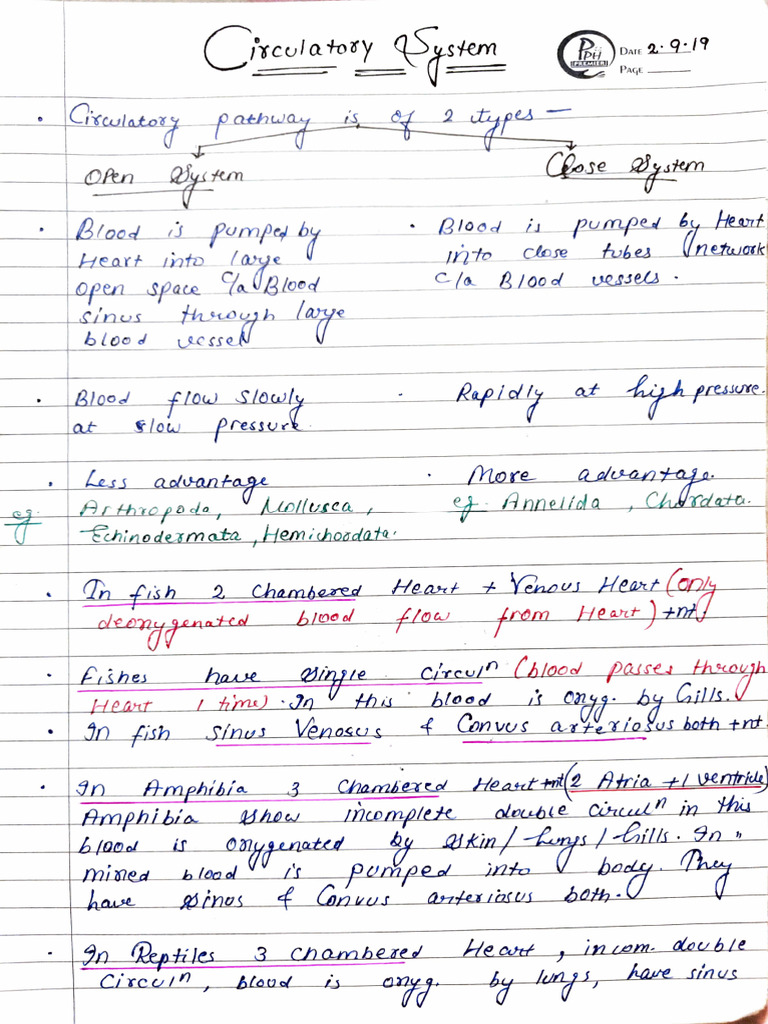 Circulatory System
PPH
PREMIER
DATE 2.9.19
PAGE
• Circulatory pathway is of 2 types —
Open System
Close System
• Blood is pumped by
Heart into large
open space c/a Blood
sinus through large
blood vessel
• Blood is pumped by Heart
into close tubes (network
c/a Blood vessels.
• Blood flow slowly
at slow pressure.
• Rapidly at high pressure.
• Less advantage
eg. Arthropoda, Mollusca,
Echinodermata, Hemichordata.
• More advantage.
eg. Annelida, Chordata.
• In fish 2 chambered Heart + Venous Heart (only
deoxygenated blood flow from Heart) +nt.
• Fishes have single circulⁿ (blood passes through
Heart 1 time). In this blood is oxyg. by Gills.
• In fish sinus Venosus & Convus arteriosus both +nt
• In Amphibia 3 chambered Heart +nt (2 Atria + 1 ventride)
Amphibia show incomplete double circulⁿ in this
blood is oxygenated by skin/lungs/Gills. In "
mixed blood is pumped into body. They
have sinus & Convus arteriosus both.
• In Reptiles 3 chambered Heart, incom. double
circulⁿ, blood is oxyg. by lungs, have sinus